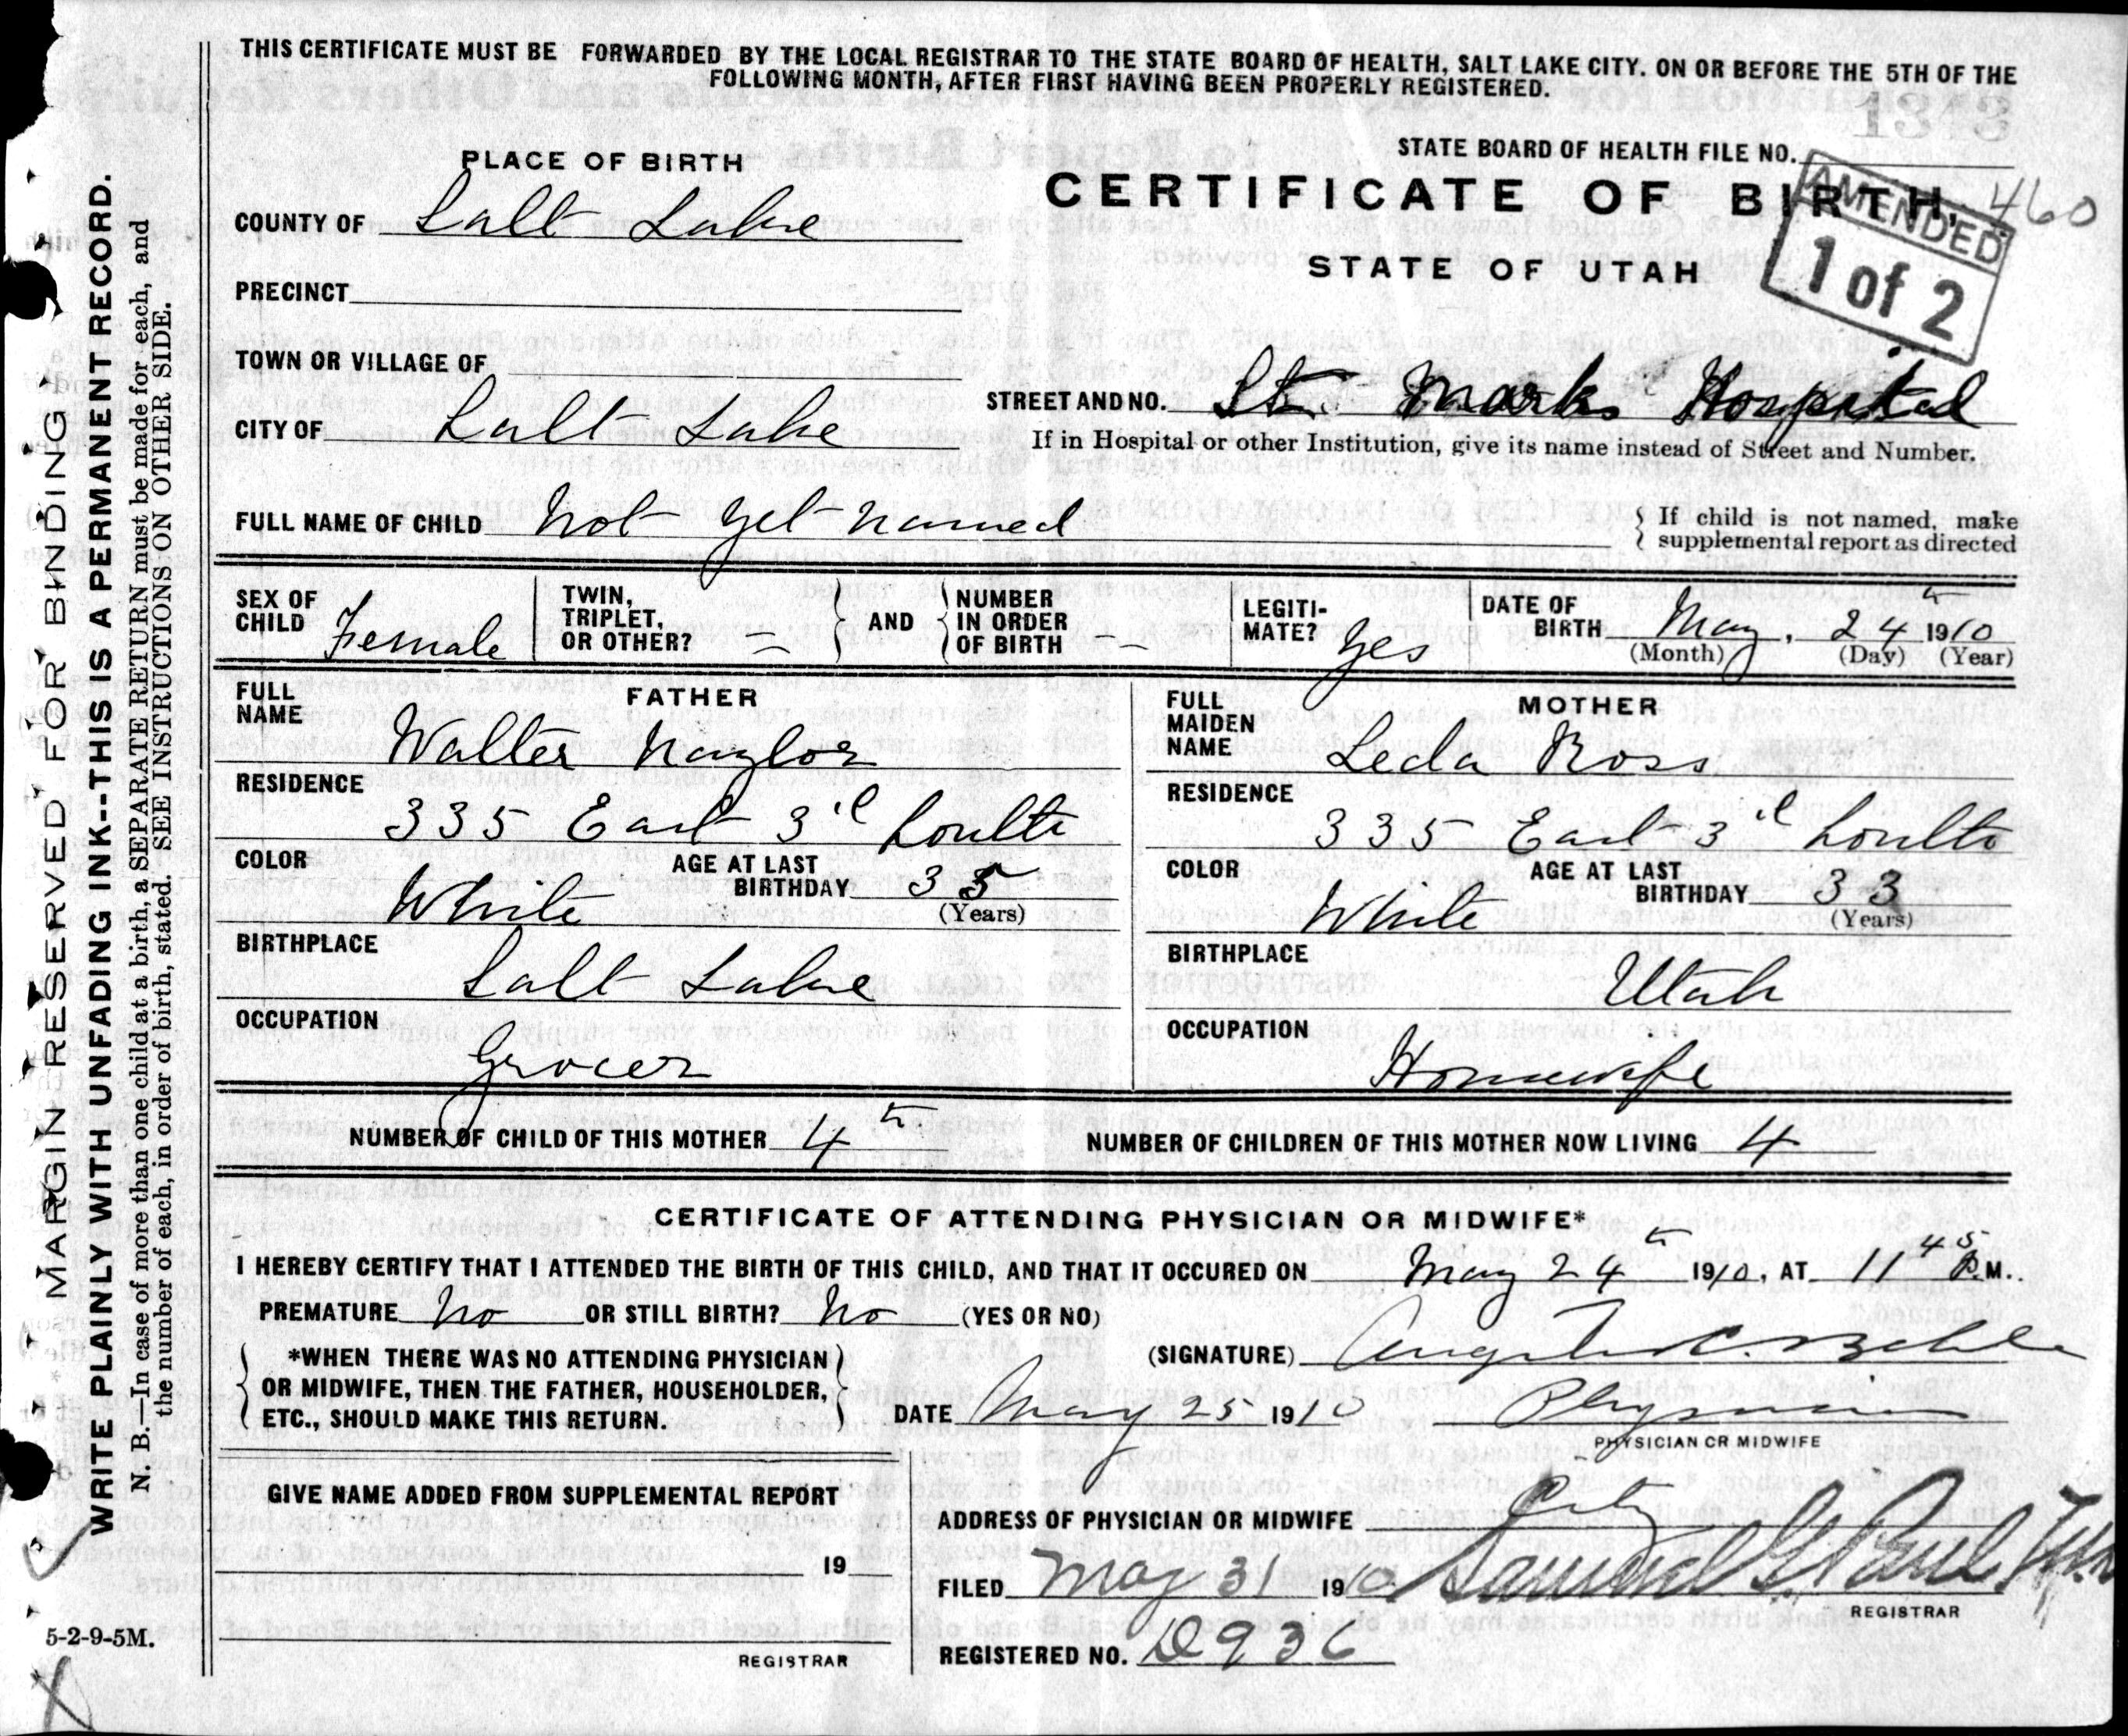 THIS CERTIFICATE MUST BE FORWARDED BY THE LOCAL REGISTRAR TO THE STATE BOARD OF HEALTH, SALT LAKE CITY. ON OR BEFORE THE 5TH OF THE
FOLLOWING MONTH, AFTER FIRST HAVING BEEN PROPERLY REGISTERED.
STATE BOARD OF HEALTH FILE NO.
PLACE OF BIRTH
CERTIFICATE OF BIRTH,
460
AMENDED
1 of 2
STATE OF UTAH
COUNTY OF Salt Lake
PRECINCT
TOWN OR VILLAGE OF
STREET AND NO. St. Marks Hospital
CITY OF Salt Lake
If in Hospital or other Institution, give its name instead of Street and Number.
FULL NAME OF CHILD Not yet named
If child is not named, make
supplemental report as directed
SEX OF
CHILD Female
TWIN,
TRIPLET,
OR OTHER? –
AND
NUMBER
IN ORDER
OF BIRTH –
LEGITI-
MATE? Yes
DATE OF
BIRTH May, 24th 1910
(Month) (Day) (Year)
FATHER
FULL
NAME
Walter Naylor
RESIDENCE
335 East 3d South
COLOR
White
AGE AT LAST
BIRTHDAY 35
(Years)
BIRTHPLACE
Salt Lake
OCCUPATION
Grocer
MOTHER
FULL
MAIDEN
NAME
Leda Ross
RESIDENCE
335 East 3d South
COLOR
White
AGE AT LAST
BIRTHDAY 33
(Years)
BIRTHPLACE
Utah
OCCUPATION
Housewife
NUMBER OF CHILD OF THIS MOTHER 4th
NUMBER OF CHILDREN OF THIS MOTHER NOW LIVING 4
CERTIFICATE OF ATTENDING PHYSICIAN OR MIDWIFE*
I HEREBY CERTIFY THAT I ATTENDED THE BIRTH OF THIS CHILD, AND THAT IT OCCURED ON May 24th 1910, AT 11 45 P.M.
PREMATURE No OR STILL BIRTH? No (YES OR NO)
*WHEN THERE WAS NO ATTENDING PHYSICIAN
OR MIDWIFE, THEN THE FATHER, HOUSEHOLDER,
ETC., SHOULD MAKE THIS RETURN.
(SIGNATURE)
DATE May 25 1910
Physician
PHYSICIAN OR MIDWIFE
GIVE NAME ADDED FROM SUPPLEMENTAL REPORT
19
REGISTRAR
ADDRESS OF PHYSICIAN OR MIDWIFE City
FILED May 31 1910 Samuel G. Paul
REGISTRAR
REGISTERED NO. D936
5-2-9-5M.
MARGIN RESERVED FOR BINDING
WRITE PLAINLY WITH UNFADING INK--THIS IS A PERMANENT RECORD.
N. B.—In case of more than one child at a birth, a SEPARATE RETURN must be made for each, and
the number of each, in order of birth, stated. SEE INSTRUCTIONS ON OTHER SIDE.